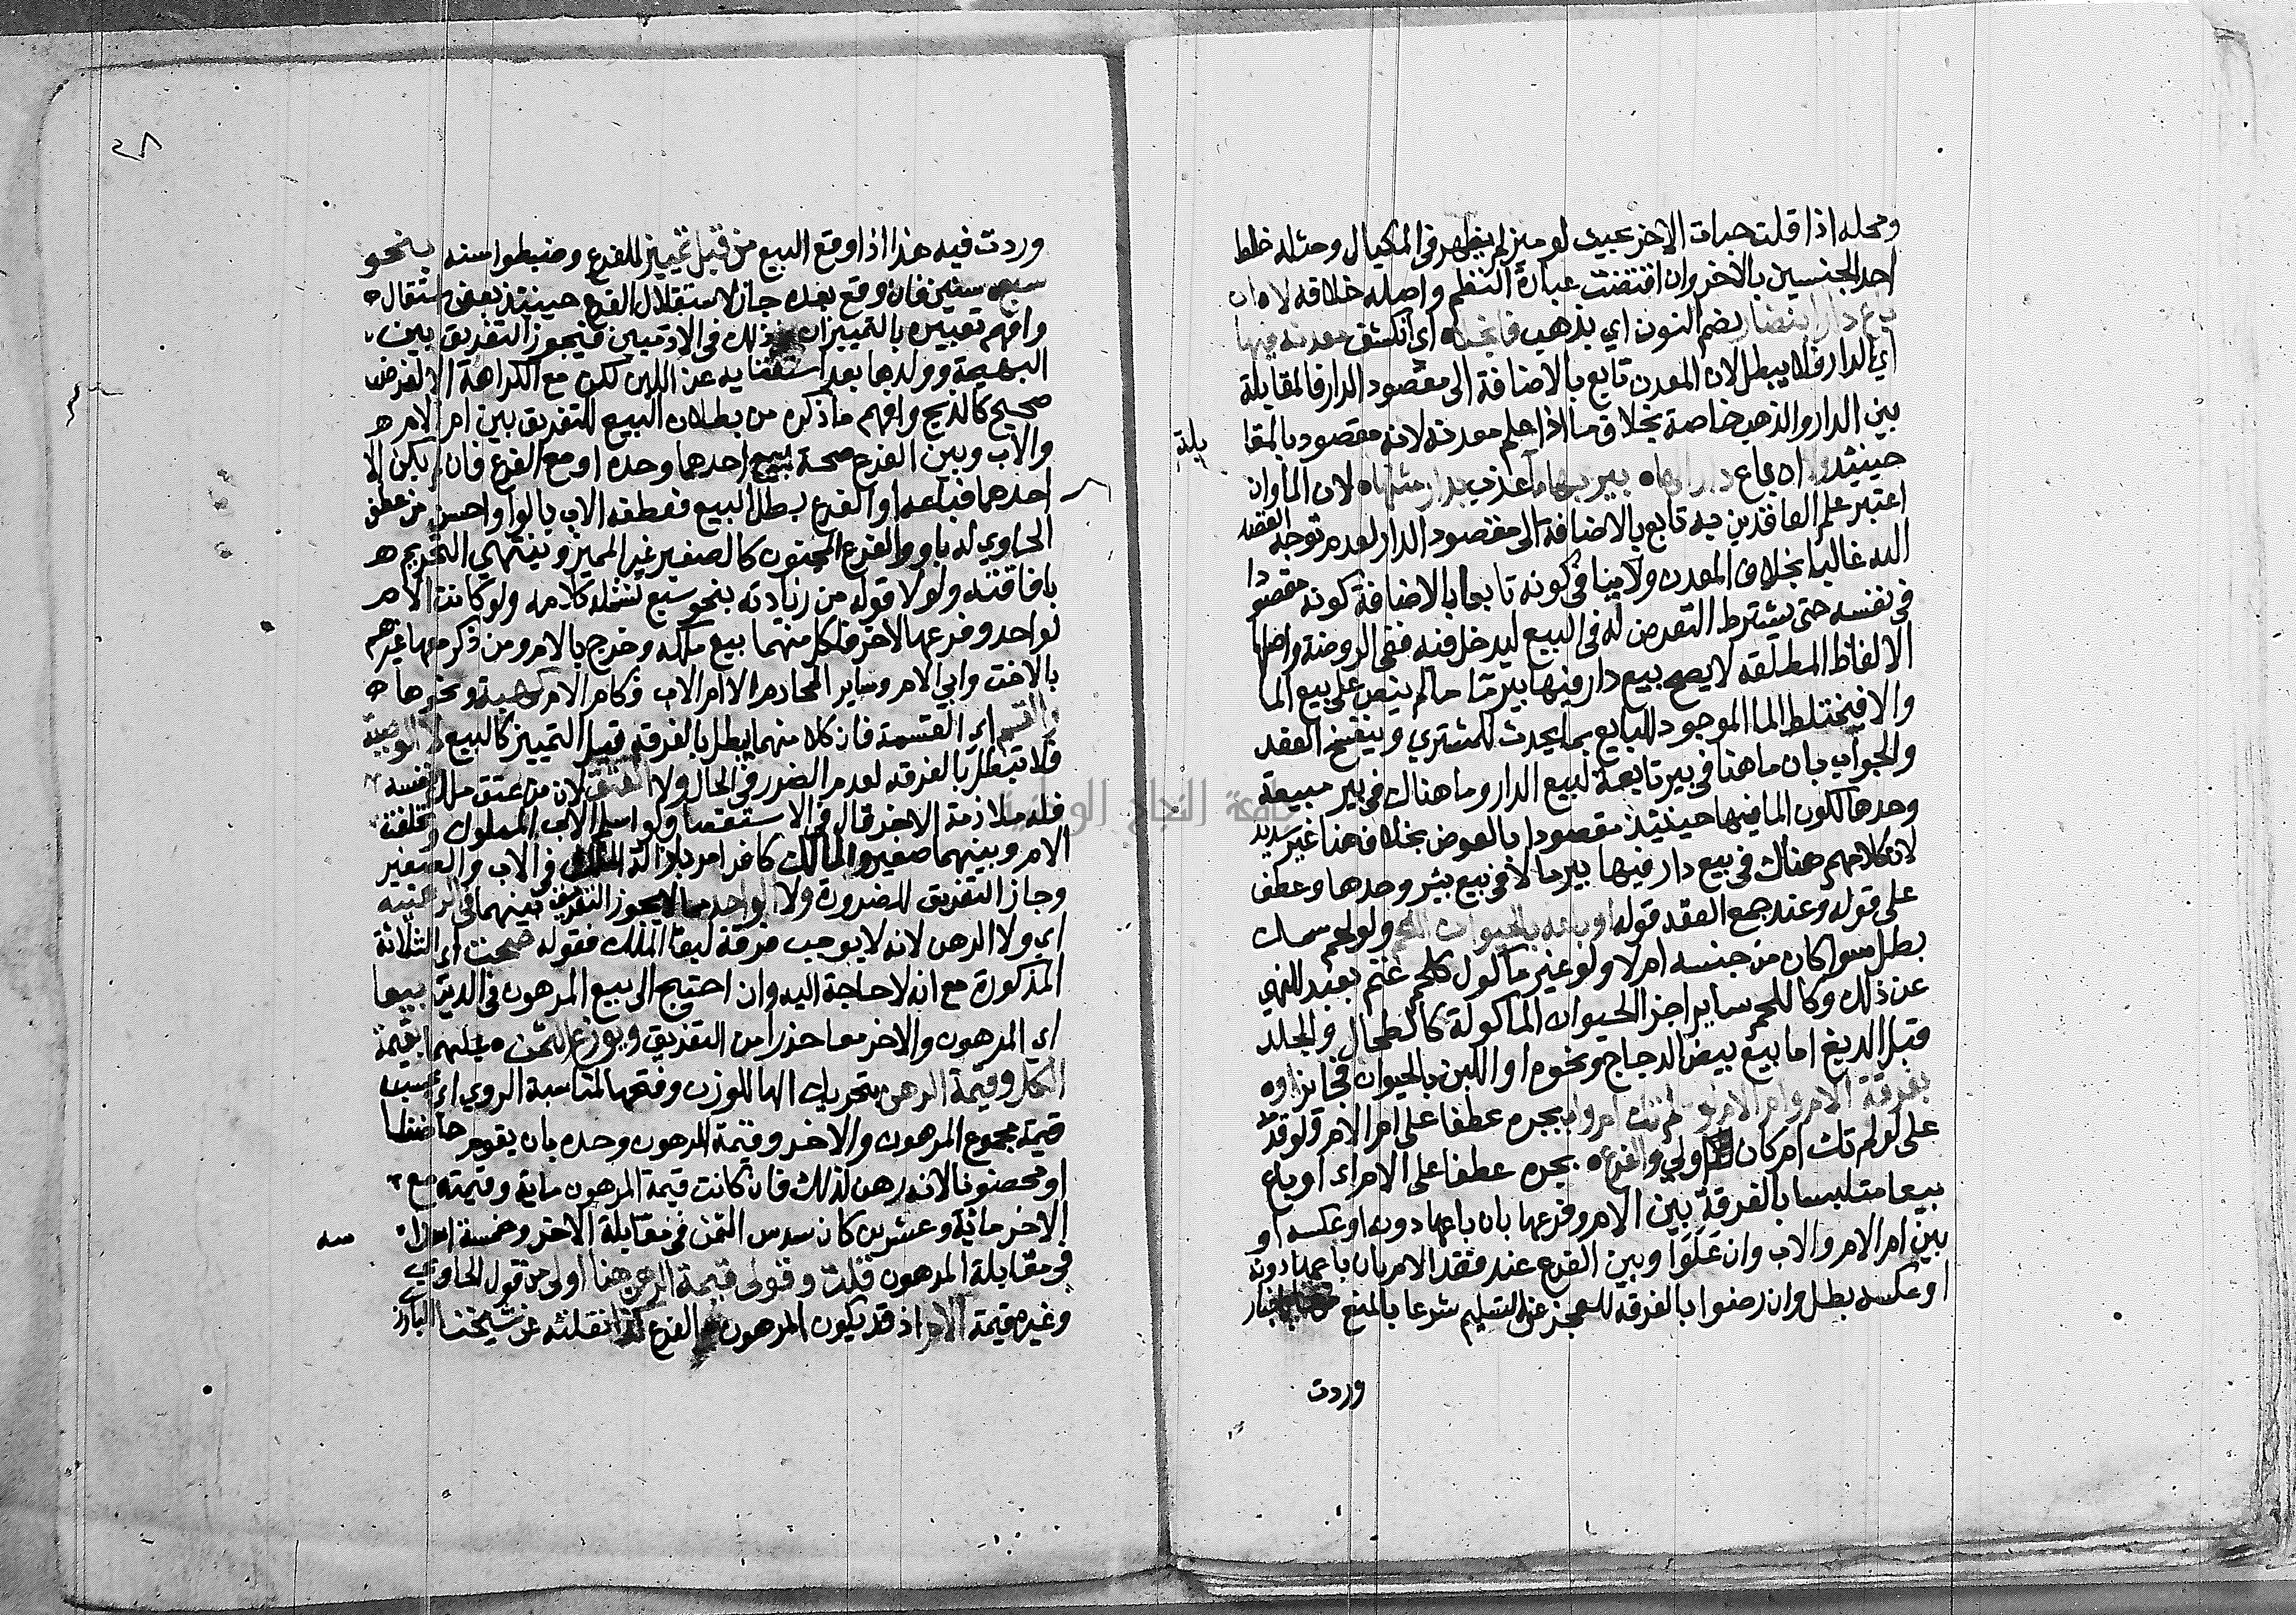 ومحله اذا قلت حبات الاخر بحيث لو ميز لم يظهر في المكيال ومثله خلط
احد الجنسين بالاخر وان اقتضت عبارة النظم واصله خلافه لا ان
باع دارا بنضار بضم النون اي بذهب فانجلا اي انكشف معدنه فيها
اي الدار فلا يبطل لان المعدن تابع بالاضافة الى مقصود الدار فالمقابلة
بين الدار والذهب خاصة بخلاف ما اذا علم معدنه لانه مقصود بالمقا
بلة
حينئذ ولا ان باع دارا بها بير بها ما عذب بدار مثلها لان الما وان
اعتبر علم العاقدين به تابع بالاضافة الى مقصود الدار لعدم توجه القصد
اليه غالبا بخلاف المعدن ولا ينافي كونه تابعا بالاضافة كونه مقصودا
في نفسه حتى يشترط التعرض له في البيع ليدخل فيه ففي الروضة واصلها
الالفاظ المطلقه لا يصح بيع دار فيها بير ما ما لم ينص على بيع الما
والا فيختلط الما الموجود للبايع بما يحدث للمشتري وينفسخ العقد
والجواب بان ما هنا في بير تابعة لبيع الدار وما هناك في بير مبيعة
وحدها لكون الما فيها حينئذ مقصودا بالعوض بخلاف هنا غير سديد
لان كلامهم هناك في بيع دار فيها بير ما لا في بيع بئر وحدها وعطف
على قوله وعند جمع العقد قوله او باعه بالحيوان اللحم ولو لحم سمك
بطل سوا كان من جنسه ام لا ولو غير ماكول كلحم غنم بعبد للنهي
عن ذلك وكاللحم ساير اجزا الحيوان الماكولة كالطحال والجلد
قبل الدبغ اما بيع بيض الدجاج ونحوه او اللبن بالحيوان فجايز اوه
بفرقة الام وام الام لو لم تك ام واب بجره عطفا على ام الام ولو قدم
على لو لم تك ام كان اولى والفرع بجره عطفا على الام اي او باع
بيعا متلبسا بالفرقة بين الام وفرعها بان باعها دونه او عكسه او
بين ام الام والاب وان علوا وبين الفرع عند فقد الام بان باعهما دونه
او عكسه بطل وان رضوا بالفرقه للعجز عن التسليم شرعا بالمنع
وردت
وردت فيه هذا اذا وقع البيع من قبل تمييز للفرع وضبطوا سنه بنحو
سبع سنين فان وقع بعده جاز لاستقلال الفرع حينئذ بعض استقلال
وافهم تعبيره بالتمييز ان ذلك في الادميين فيجوز التفريق بين
البهيمة وولدها بعد استغنايه عن اللبن لكن مع الكراهة الا لغرض
صحيح كالذبح وافهم ما ذكره من بطلان البيع للتفريق بين ام الام
والاب وبين الفرع صحة بيع احدهما وحده او مع الفرع فان لم يكن الا
احدهما فباعه او الفرع بطل البيع فعطفه الاب بالواو احسن من عطف
الحاوي له باو والفرع المجنون كالصغير غير المميز وينتهي التحريم
بافاقته ولولا قوله من زيادته بنحو سبع لشمله كلامه ولو كانت الام
لواحد وفرعها لاخر فلكل منهما بيع ملكه وخرج بالام ومن ذكر معها غيرهم
بالاخت وابي الام وساير المحارم الا ام الاب فكام الام كهبة ونحوها
والقسم اي القسمة فان كلا منهما يبطل بالفرقة قبل التمييز كالبيع لا الوصية
فلا تبطل بالفرقه لعدم الضرر في الحال ولا العتق لان من عتق ملك نفسه
فله ملازمة الاخر قال في الاستقصا ولو اسلم الاب المملوك وتخلفت
الام وبينهما صغير والمالك كافر امر بازالة الملك في الاب والصغير
وجاز التفريق للضرورة ولا لواحد مما لا يجوز التفريق بينهما في الرهنيه
اي ولا الرهن لانه لا يوجب فرقة لبقا الملك فقوله صحت اي الثلاثة
المذكورة مع انه لا حاجة اليه وان احتيج الى بيع المرهون في الدين بيعا
اي المرهون والاخر معا حذرا من التفريق ويوزع الثمن عليهما بقيمة
الكل وقيمة الرهن بتحريك الها للوزن وفتحها لمناسبة الروي اي بحسب
قيمة مجموع المرهون والاخر وقيمة المرهون وحده بان يقوم حاضنا
او محضونا لانه رهن كذلك فان كانت قيمة المرهون ماية وقيمته مع
الاخر ماية وعشرين كان سدس الثمن في مقابلة الاخر وخمسة اسداسه
في مقابلة المرهون قلت وقولي قيمة الرهن هنا اولى من قول الحاوي
وغيره قيمة الام اذ قد يكون المرهون الفرع كذا نقلته عن شيخنا البارز